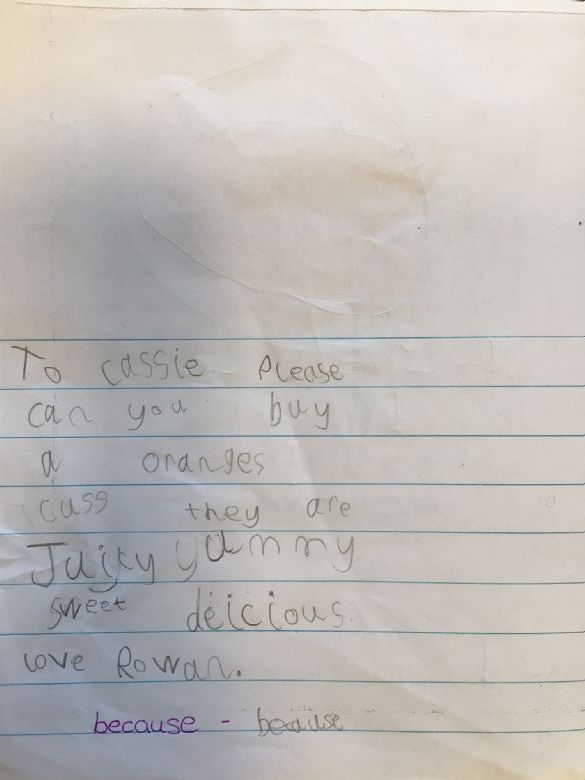 To cassie Please
can you buy
a oranges
cuss they are
Juijcy yummy
sweet deicious.
love Rowan.
because - because